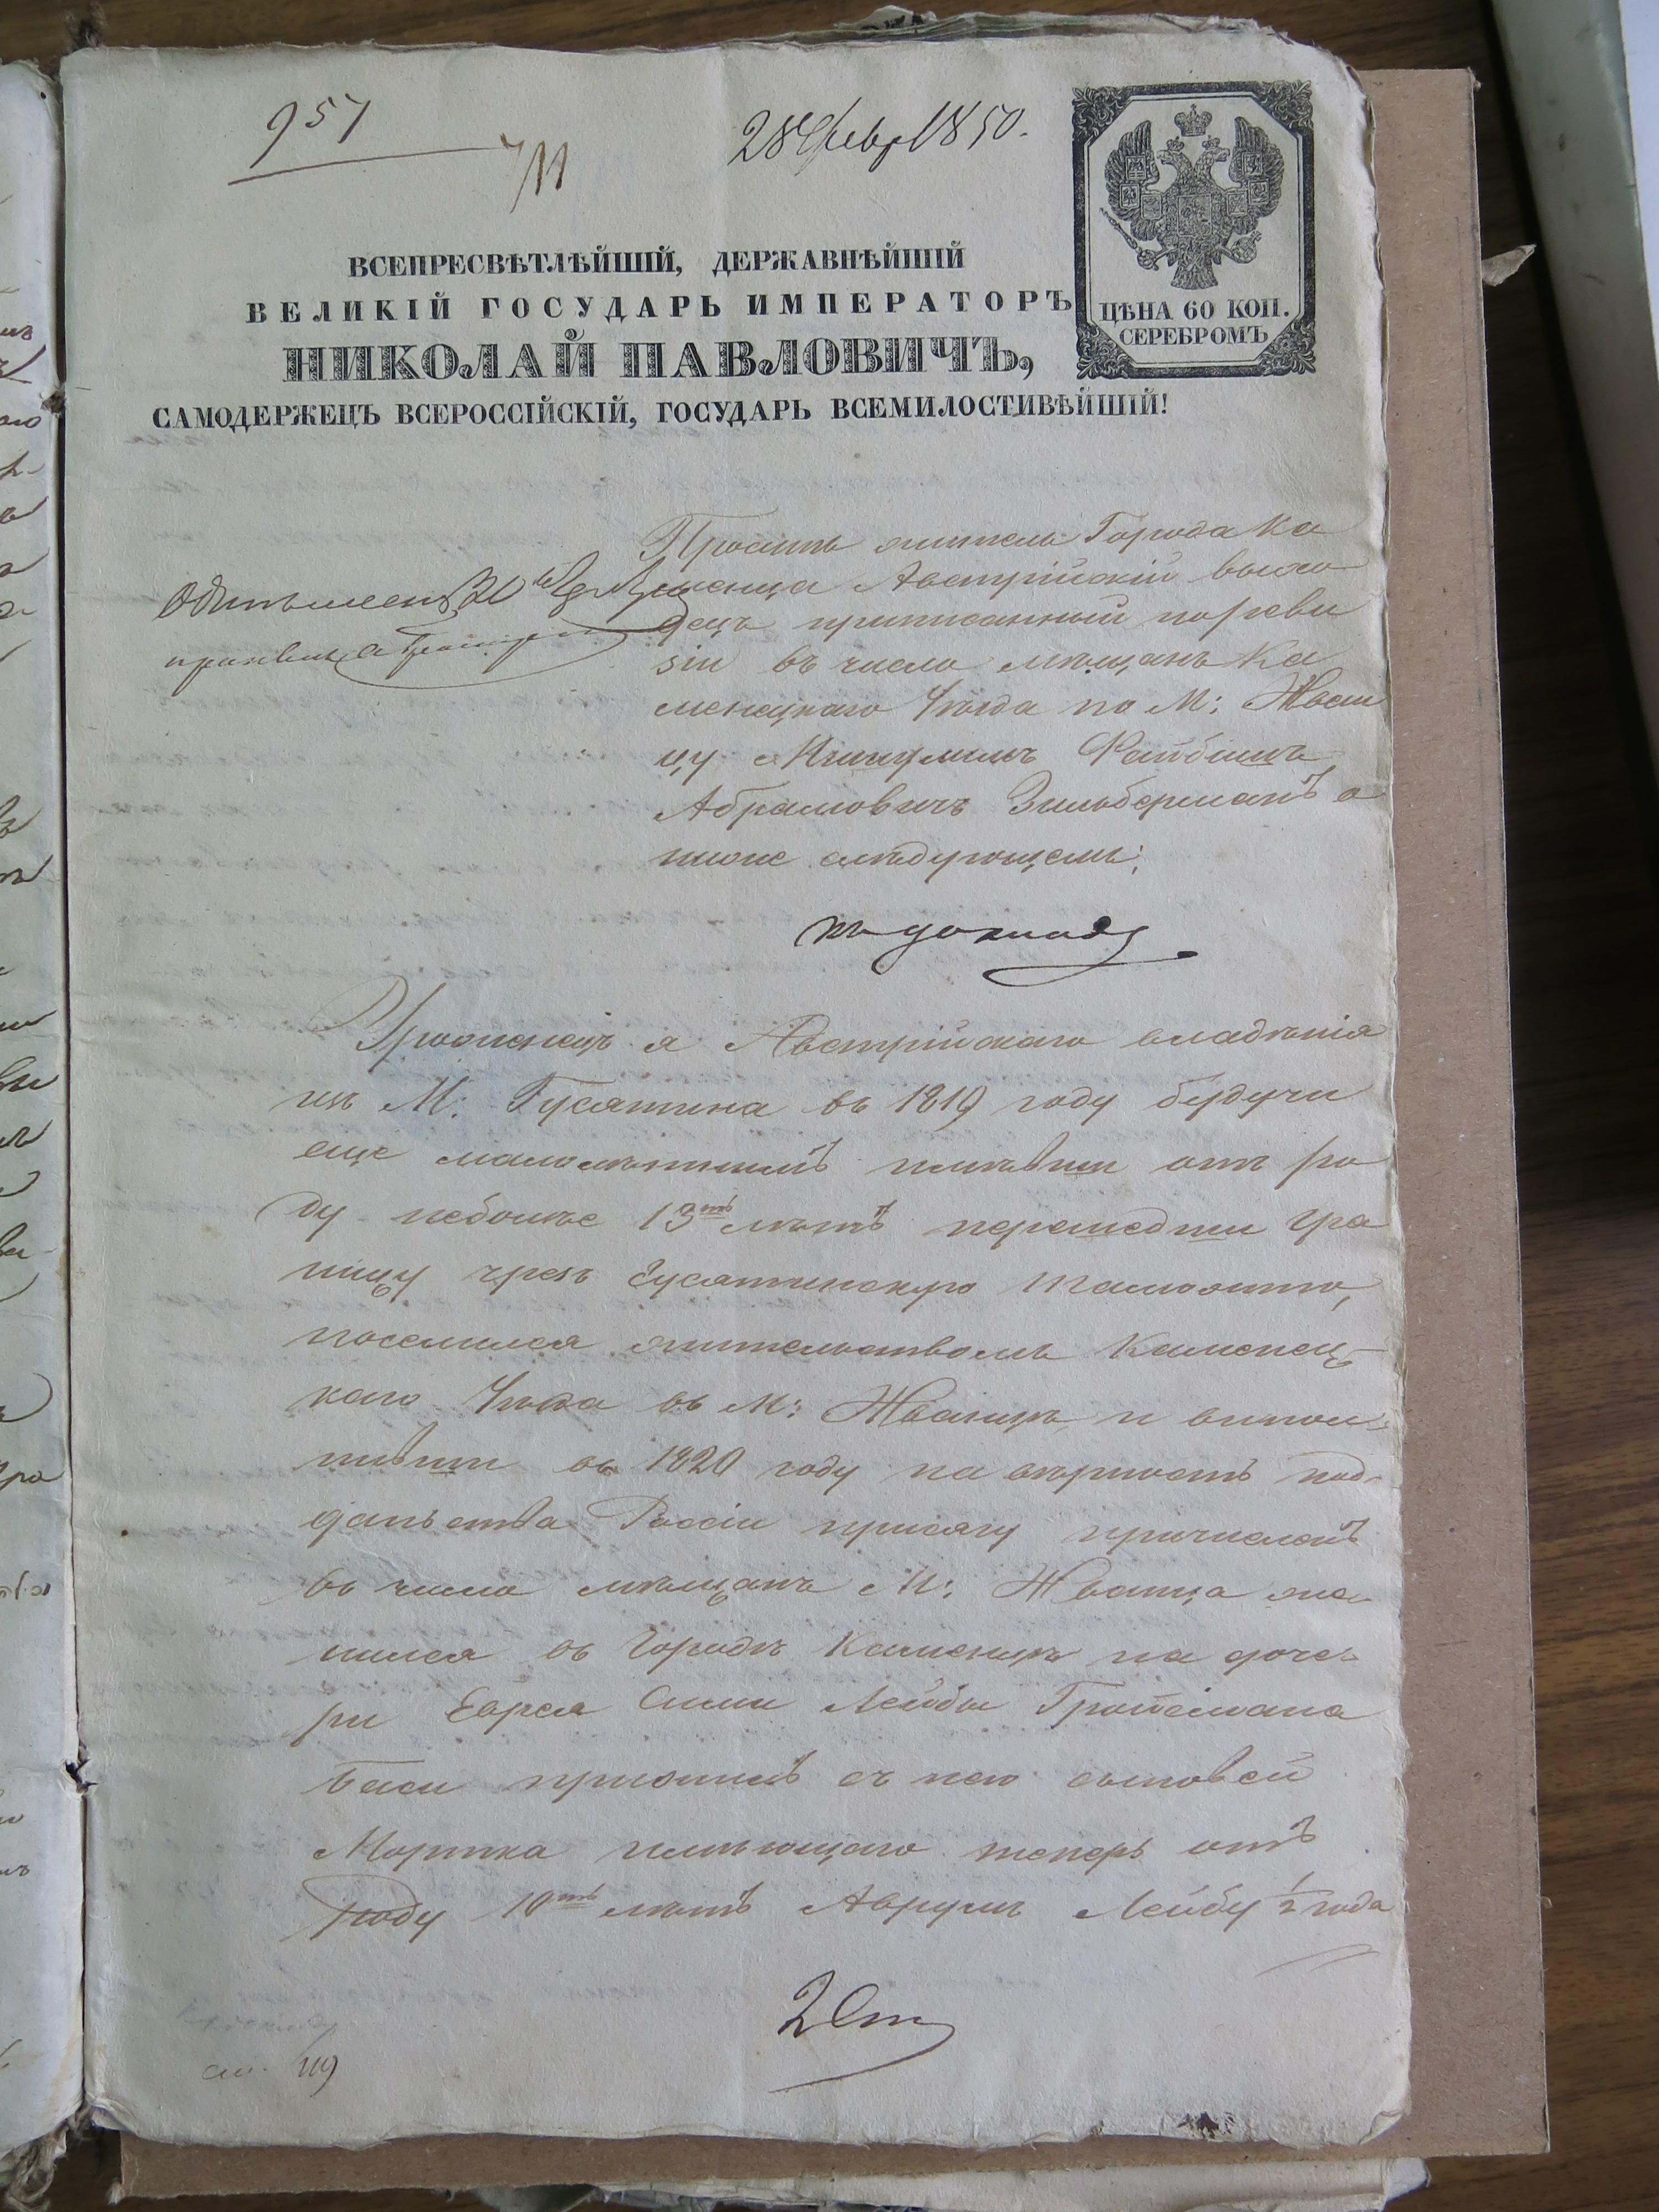 957
711
28 Февр 1850.
ЦѢНА 60 КОП.
СЕРЕБРОМЪ
ВСЕПРЕСВѢТЛѢЙШІЙ, ДЕРЖАВНѢЙШІЙ
ВЕЛИКІЙ ГОСУДАРЬ ИМПЕРАТОРЪ
НИКОЛАЙ ПАВЛОВИЧЪ,
САМОДЕРЖЕЦЪ ВСЕРОССІЙСКІЙ, ГОСУДАРЬ ВСЕМИЛОСТИВѢЙШІЙ!
Проситъ житель Города Ка
менца Австрійскій выхо
децъ приписанный поревы
зіи въ число мѣщанъ Ка
менецкаго Уѣзда по М: Жван
цу Мишулимъ Файбишъ
Абрамовичъ Зильберманъ о
ниже слѣдующемъ:
къ докладу
Уроженецъ я Австрійскаго владѣнія
изъ М: Гусятина въ 1819 году будучи
еще малолѣтнимъ имѣвши отъ ро
ду неболѣе 13ть лѣтъ перешедши гра
ницу чрезъ Гусятинскую таможню,
поселился жительствомъ Каменец
каго Уѣзда въ М: Жванцѣ, и выпол
нивши въ 1820 году на вѣрность под
даньства Россіи присягу причисленъ
въ число мѣщанъ М: Жванца же
нился въ Городѣ Каменцѣ на доче
ри Еврея Лейбы
Баси прижилъ съ нею сыновей
Мортка имѣющаго теперь отъ
роду 10ть лѣтъ Аврумъ Лейбу ½ года
2 Ст
119